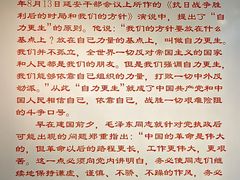 年8月13日延安干部会议上所作的《抗日战争胜
利后的时局和我们的方针》演说中，提出了“自
力更生”的原则。他说：“我们的方针要放在什么
基点上？放在自己力量的基点上，叫做自力更生。
我们并不孤立，全世界一切反对帝国主义的国家
和人民都是我们的朋友。但是我们强调自力更生，
我们能够依靠自己组织的力量，打败一切中外反
动派。”从此“自力更生”就成了中国共产党和中
国人民相信自己、依靠自己，战胜一切艰难险阻
的斗争口号。
早在建国前夕，毛泽东同志就针对党执政后
可能出现的问题郑重指出：“中国的革命是伟大
的，但革命以后的路程更长，工作更伟大，更艰
苦。这一点必须向党内讲明白，务必使同志们继
续地保持谦虚、谨慎、不骄、不躁的作风，务必